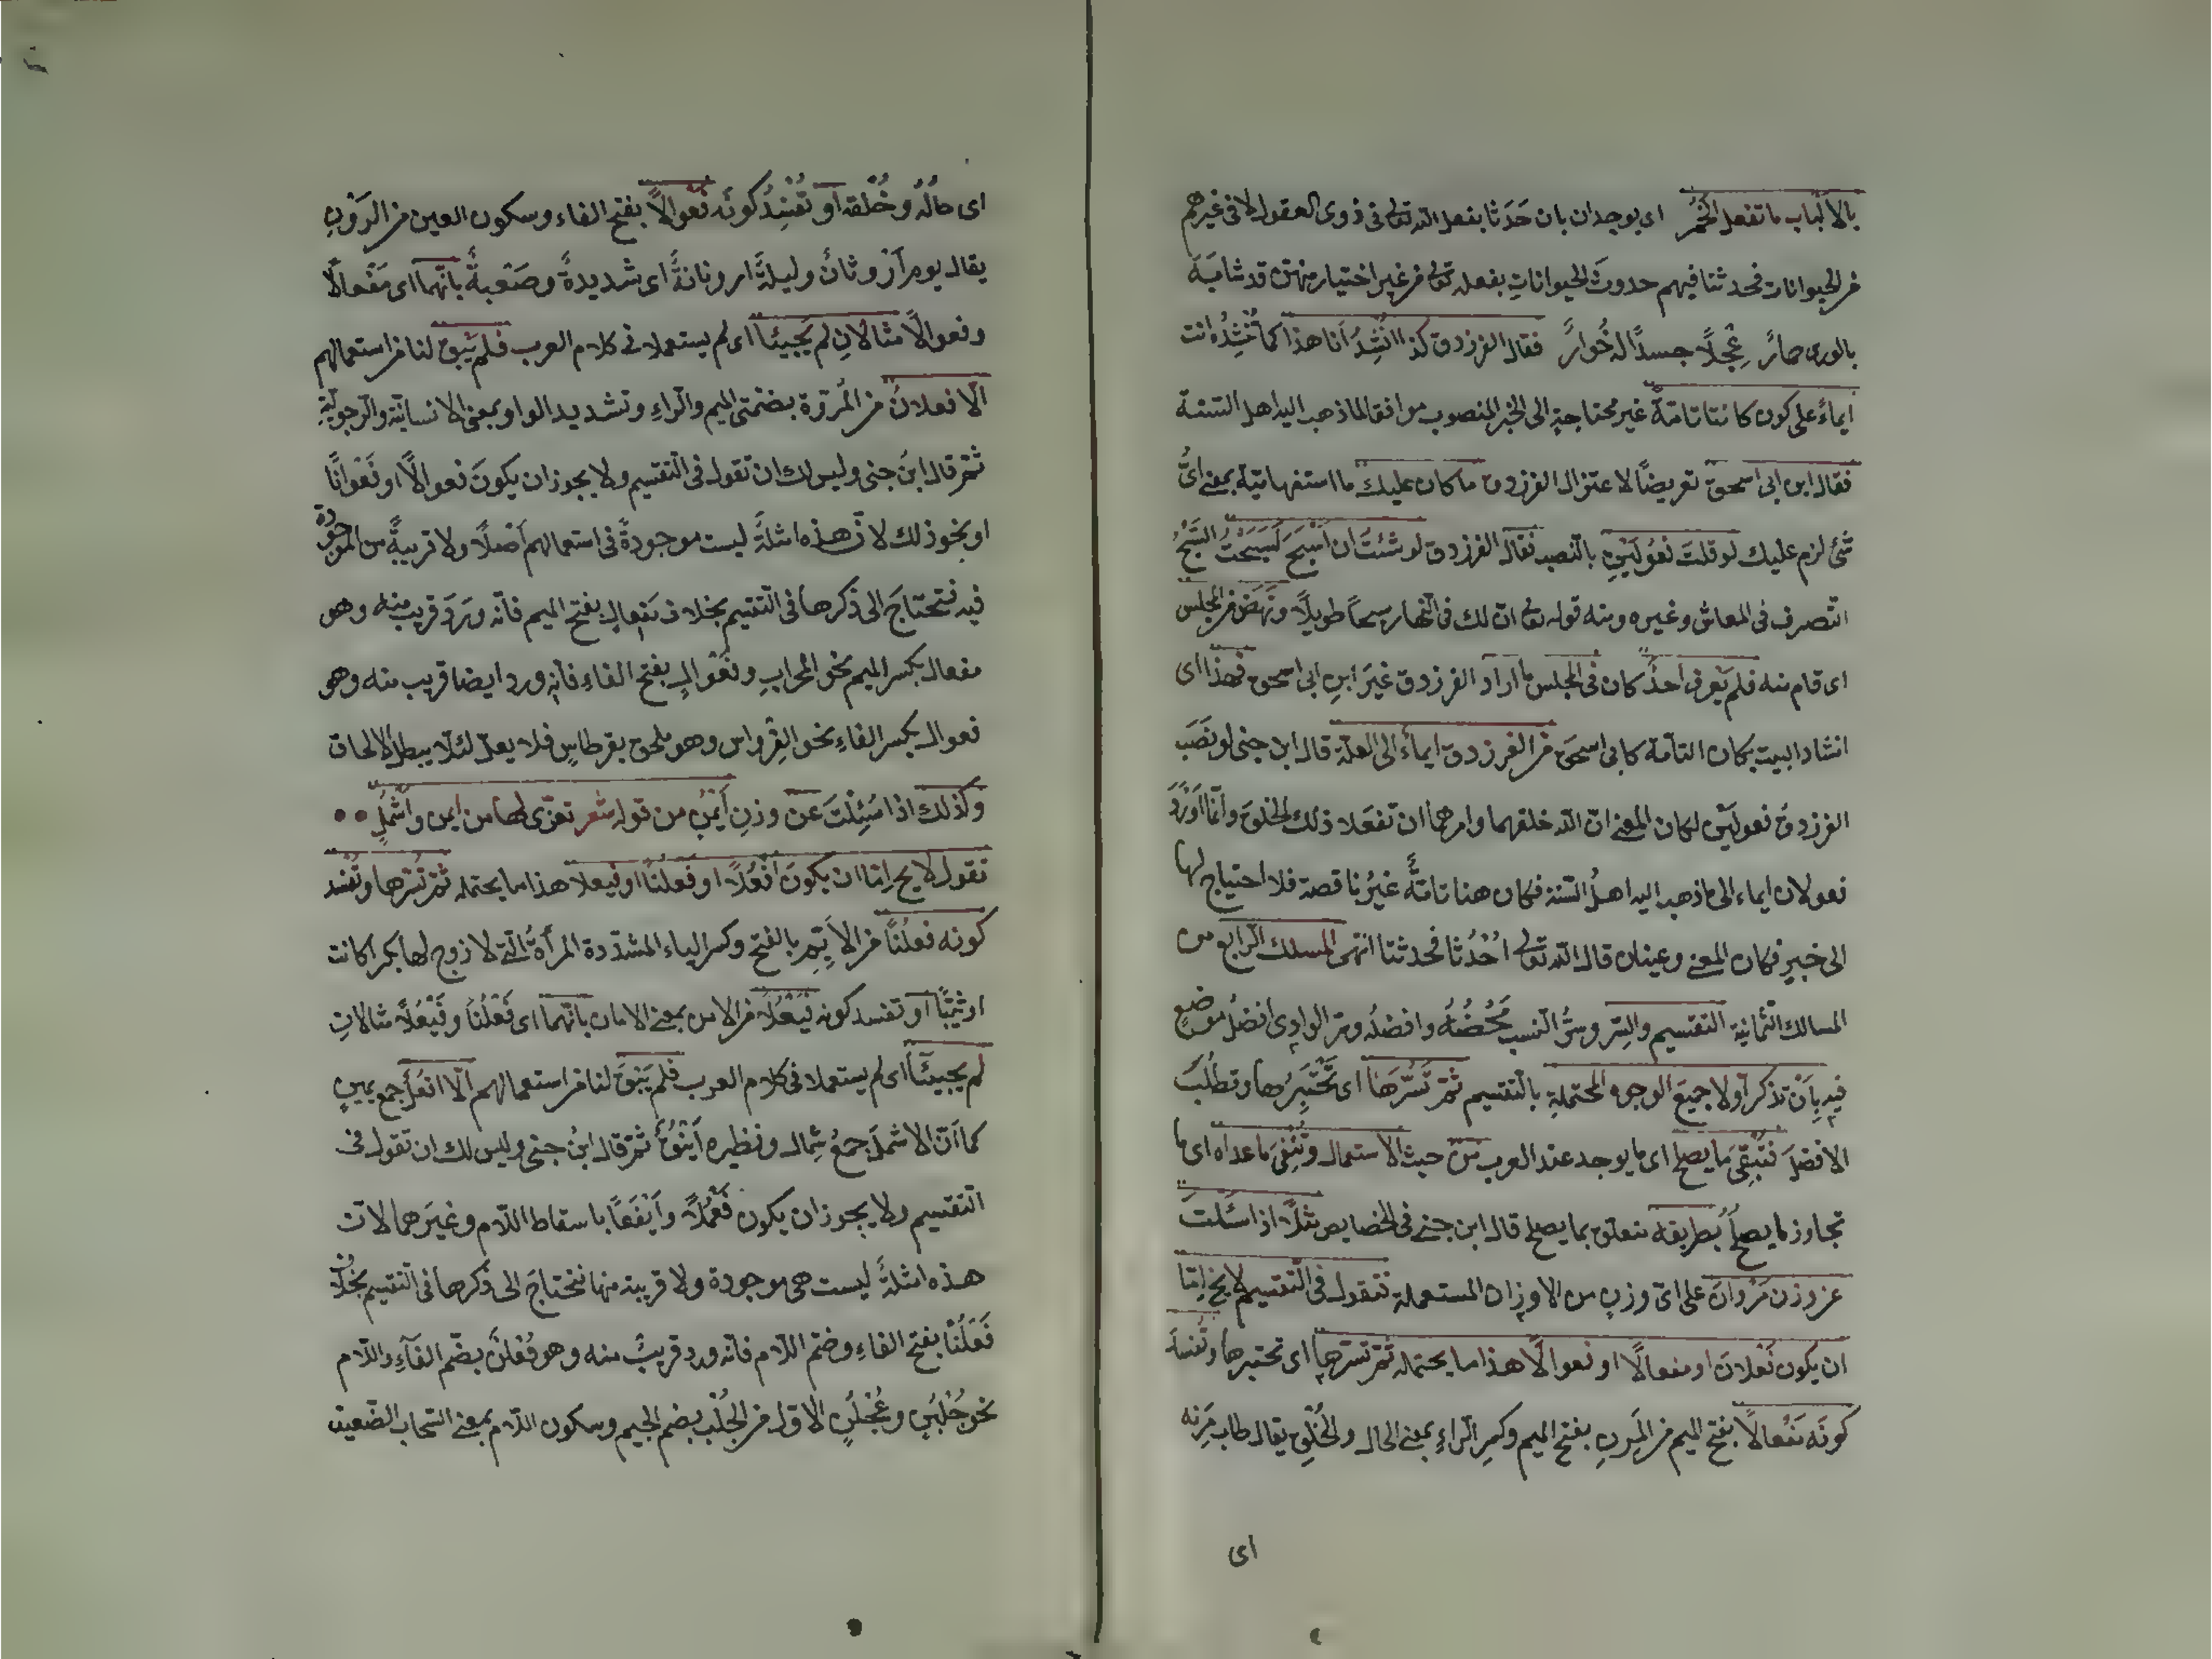 بالالباب ما تفعل الخمر اى يوجدان بان حَدَثا بفعل الله تعالى فى ذوى العقول لا فى غيرهم
من الحيوانات فحدثنا فيهم حدوثَ الحيواناتِ بفعله تعالى من غير اختيار منهن قد شابَهَ
بالورى حمارٌ عِجْلًا جسدًا له خُوارٌ فقال الفرزدق كذا اُنْشِدُ اَنا هذا كما تُنْشِدُه انت
ايماءً على كون كانتا تامّةً غير محتاجةٍ الى الخبر المنصوب موافقا لما ذهب اليه اهل السّنة
فقال ابن ابى اسحق تعريضًا لاعتزال الفرزدق ما كان عليك ما استفهاميّة بمعنى اىُّ
شئ لزم عليك لو قلتَ فعُولَيْنِ بالنّصب فقال الفرزدق لو شئتُ ان اُسَبِّحَ لَسَبَّحْتُ السَّبْحُ
التّصرف فى المعاش وغيره ومنه قوله تعالى انّ لك فى النّهار سبحاً طويلًا ونَهَضَ من المجلس
اى قام منه فلم يَعرف احدٌ كان فى المجلس ما اراد الفرزدق غيرَ ابنِ ابى اسحق فهذا اى
انشاد البيت بكان التامّة كابى اسحق من الفرزدق ايماءً الى العلّة قال ابن جنى لو نَصَبَ
الفرزدق فعولَيْن لكان المعنى انّ الله خلقهما وامرهما ان تفعلا ذلك الخلق وانّما اَوْرَدَ
فعولان ايماء الى ما ذهب اليه اهلُ السّنة فكان هنا تامّةٌ غيرُ ناقصة فلا احتياج لها
الى خبرٍ فكان المعنى وعينان قال الله تعالى اُحْدُثا فحدثتا انتهى المسلك الرّابع من
المسالك الثّمانية التقسيم والسِّر وسرُّ النّسب مَحْضُهُ وافضلُه وسرّ الوادى افضلُ موضعٍ
فيه بِاَنْ تذكر اَولا جميعَ الوجوه المحتملةِ بالتّقسيم ثمّ تَسُرَّهَا اى تَخْتَبِرُها وتطلُبَ
الافضلَ فتُبْقِىَ ما يصلح اى ما يوجد عند العرب من حيث الاستعمال وتُنْفِىَ ما عداه اى ما
تجاوز ما يصلح بطريقه متعلق بما يصلح قال ابن جنى فى الخصايص مثلًا اذا سُئلتَ
عن وزن مَرْوانَ على اىّ وزنٍ من الاوزان المستعملة فتقول فى التّقسيم لا يخ امّا
ان يكون فَعْلانَ او مفعالًا او فعوالًا هذا ما يحتمله ثمّ تسرّها اى تختبرها وتُفسدَ
كونَه مَفْعالًا بفتح الميم من المَرِنِ بفتح الميم وكسرِ الرّاءِ بمعنى الحال والخُلْقِ يقال طاب مَرِنه
اى
اى حالُه وخُلقه اَو تُفْسِدُ كونَه فَعْوالًا بفتح الفاء وسكون العين من الرَوْنِ
يقال يوم اَرْوَنانٌ وليلةٌ ارونانةٌ اى شديدةٌ وصَعْبةٌ بانّهما اى مَفْعالًا
وفعوالًا مثالانِ لم يَجيئا اى لم يستعملا فى كلام العرب فلم يَبْقَ لنا من استعمالهم
الّا فعلانٌ من المُروّة بضمّتى الميم والرّاءِ وتشديد الواو بمعنى الانسانيّة والرّجوليّة
ثمّ قال ابنُ جنى وليس لك ان تقول فى التّقسيم ولا يجوز ان يكونَ فعوالًّا او فَعْوانًا
او نحو ذلك لانّ هذه امثلةٌ ليست موجودةً فى استعمالهم اَصْلًا ولا قريبةً من الموجودة
فيه فتحتاجَ الى ذكرها فى التّقسيم بخلاف مَفعالٍ بفتح الميم فانّه وَرَدَ قريب منه وهو
مفعال بكسر الميم نحو المحرابِ وفَعْوالٍ بفتح الفاءِ فانّه ورد ايضا قريب منه وهو
فعوال بكسر الفاءِ نحو القِرْواس وهو ملحق بقرطاسٍ فلا يعلّ لئلّا يبطل الالحاق
وكذلك اذا سُئِلْتَ عن وزنِ اَيْمُنٍ من قوله شعر تعزّى لها من ايمن واشْمُلِ
فتقول لا يخ امّا ان يكونَ اَفْعُلًا او فعلنًا او فيعلا هذا ما يحتمله ثمّ تسرّها وتُفْسد
كونه فعلُنًا من الاَيِّمِ بالفتح وكسر الياء المشدّدة المرأةُ الّتى لا زوج لها بكرا كانت
اوثيّبًا اَو تفسد كونه فَيْعُلًا من الامن بمعنى الامان بانّهما اى فَعْلُنًا وفَيْعُلًا مثالانِ
لم يجيئا اى لم يستعملا فى كلام العرب فلم يَبْقَ لنا من استعمالهم الّا افعُلٌ جمع يمينٍ
كما اَنّ الاشملَ جمعُ شِمال ونظيره اَيْنُقٌ ثمّ قال ابنُ جنى وليس لك ان تقول فى
التّقسيم ولا يجوز ان يكون فَعْمُلًا واَيْفَعًا باسقاط اللّام وغيرَهما لانّ
هذه امثلةٌ ليست هى موجودة ولا قريبة منها فتحتاجَ الى ذكرها فى التّقسيم بخلاف
فَعْلُنًا بفتح الفاءِ وضمّ اللّام فانّه ورد قريبٌ منه وهو فُعْلُنٌ بضمّ الفآءِ واللّام
نحو جُلْبُنٍ وعُجْلُنٍ الاوّل من الجُلْب بضم الجيم وسكون اللّام بمعنى السّحاب الضّعيف